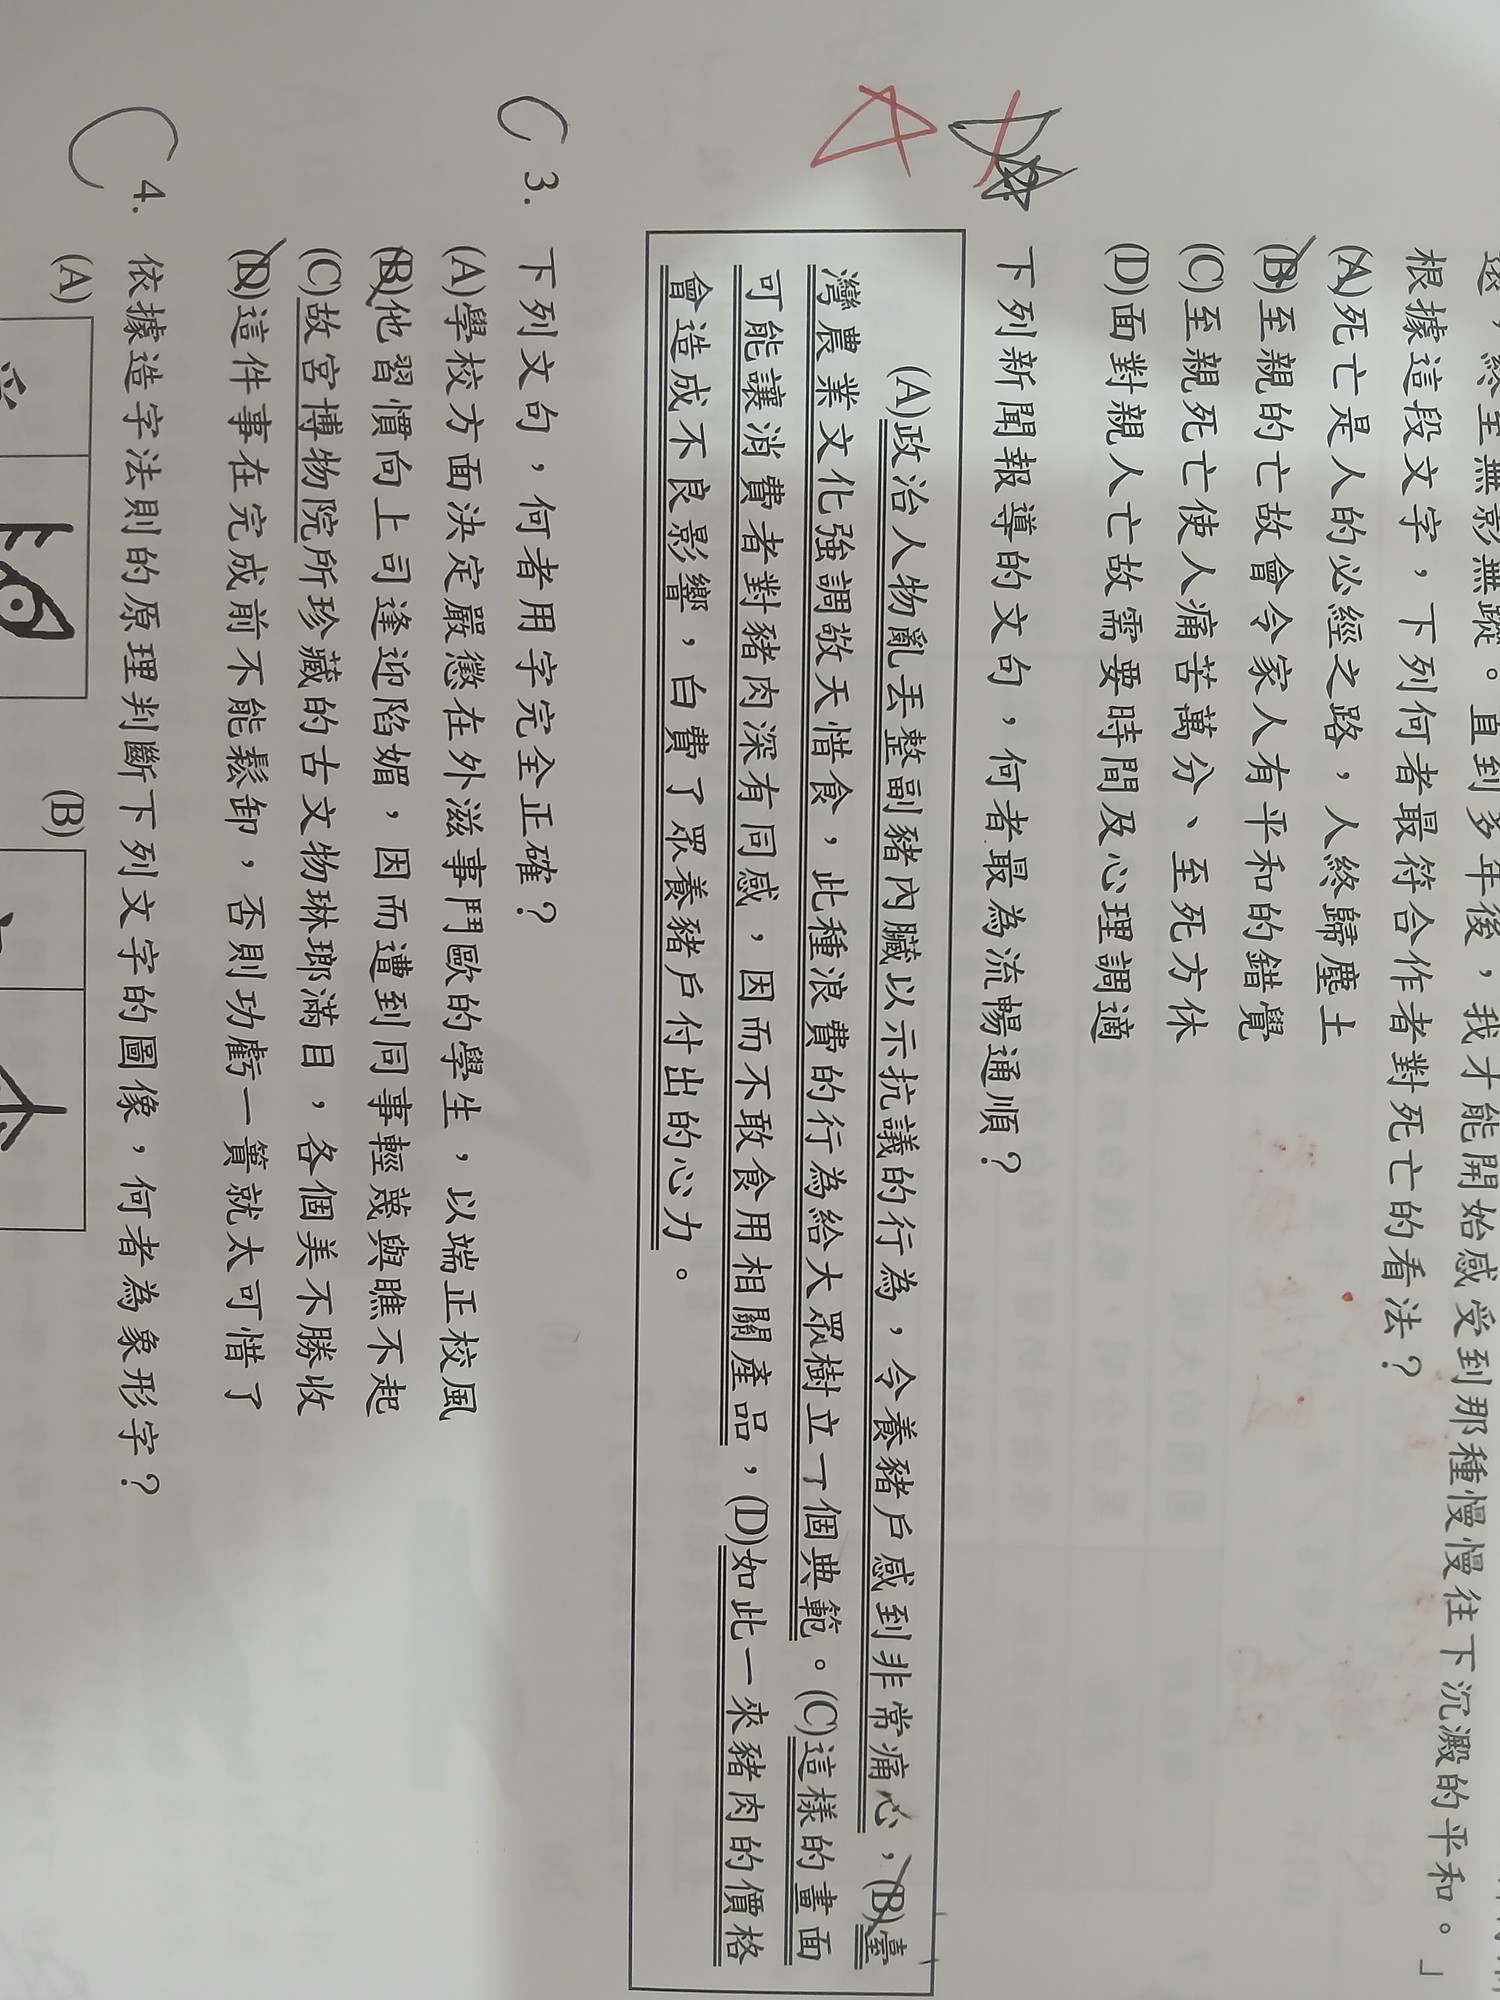 終至無影無蹤。直到多年後，我才能開始感受到那種慢慢往下沉澱的平和。」
根據這段文字，下列何者最符合作者對死亡的看法？
(A)死亡是人的必經之路，人終歸塵土
(B)至親的亡故會令家人有平和的錯覺
(C)至親死亡使人痛苦萬分、至死方休
(D)面對親人亡故需要時間及心理調適
A
下列新聞報導的文句，何者最為流暢通順？
(A)政治人物亂丟整副豬內臟以示抗議的行為，令養豬戶感到非常痛心，(B)臺
灣農業文化強調敬天惜食，此種浪費的行為給大眾樹立了個典範。(C)這樣的畫面
可能讓消費者對豬肉深有同感，因而不敢食用相關產品，(D)如此一來豬肉的價格
會造成不良影響，白費了眾養豬戶付出的心力。
C 3. 下列文句，何者用字完全正確？
(A)學校方面決定嚴懲在外滋事鬥歐的學生，以端正校風
(B)他習慣向上司逢迎陷媚，因而遭到同事輕蔑與瞧不起
(C)故宮博物院所珍藏的古文物琳瑯滿目，各個美不勝收
(D)這件事在完成前不能鬆卸，否則功虧一簣就太可惜了
C 4. 依據造字法則的原理判斷下列文字的圖像，何者為象形字？
(A)
(B)